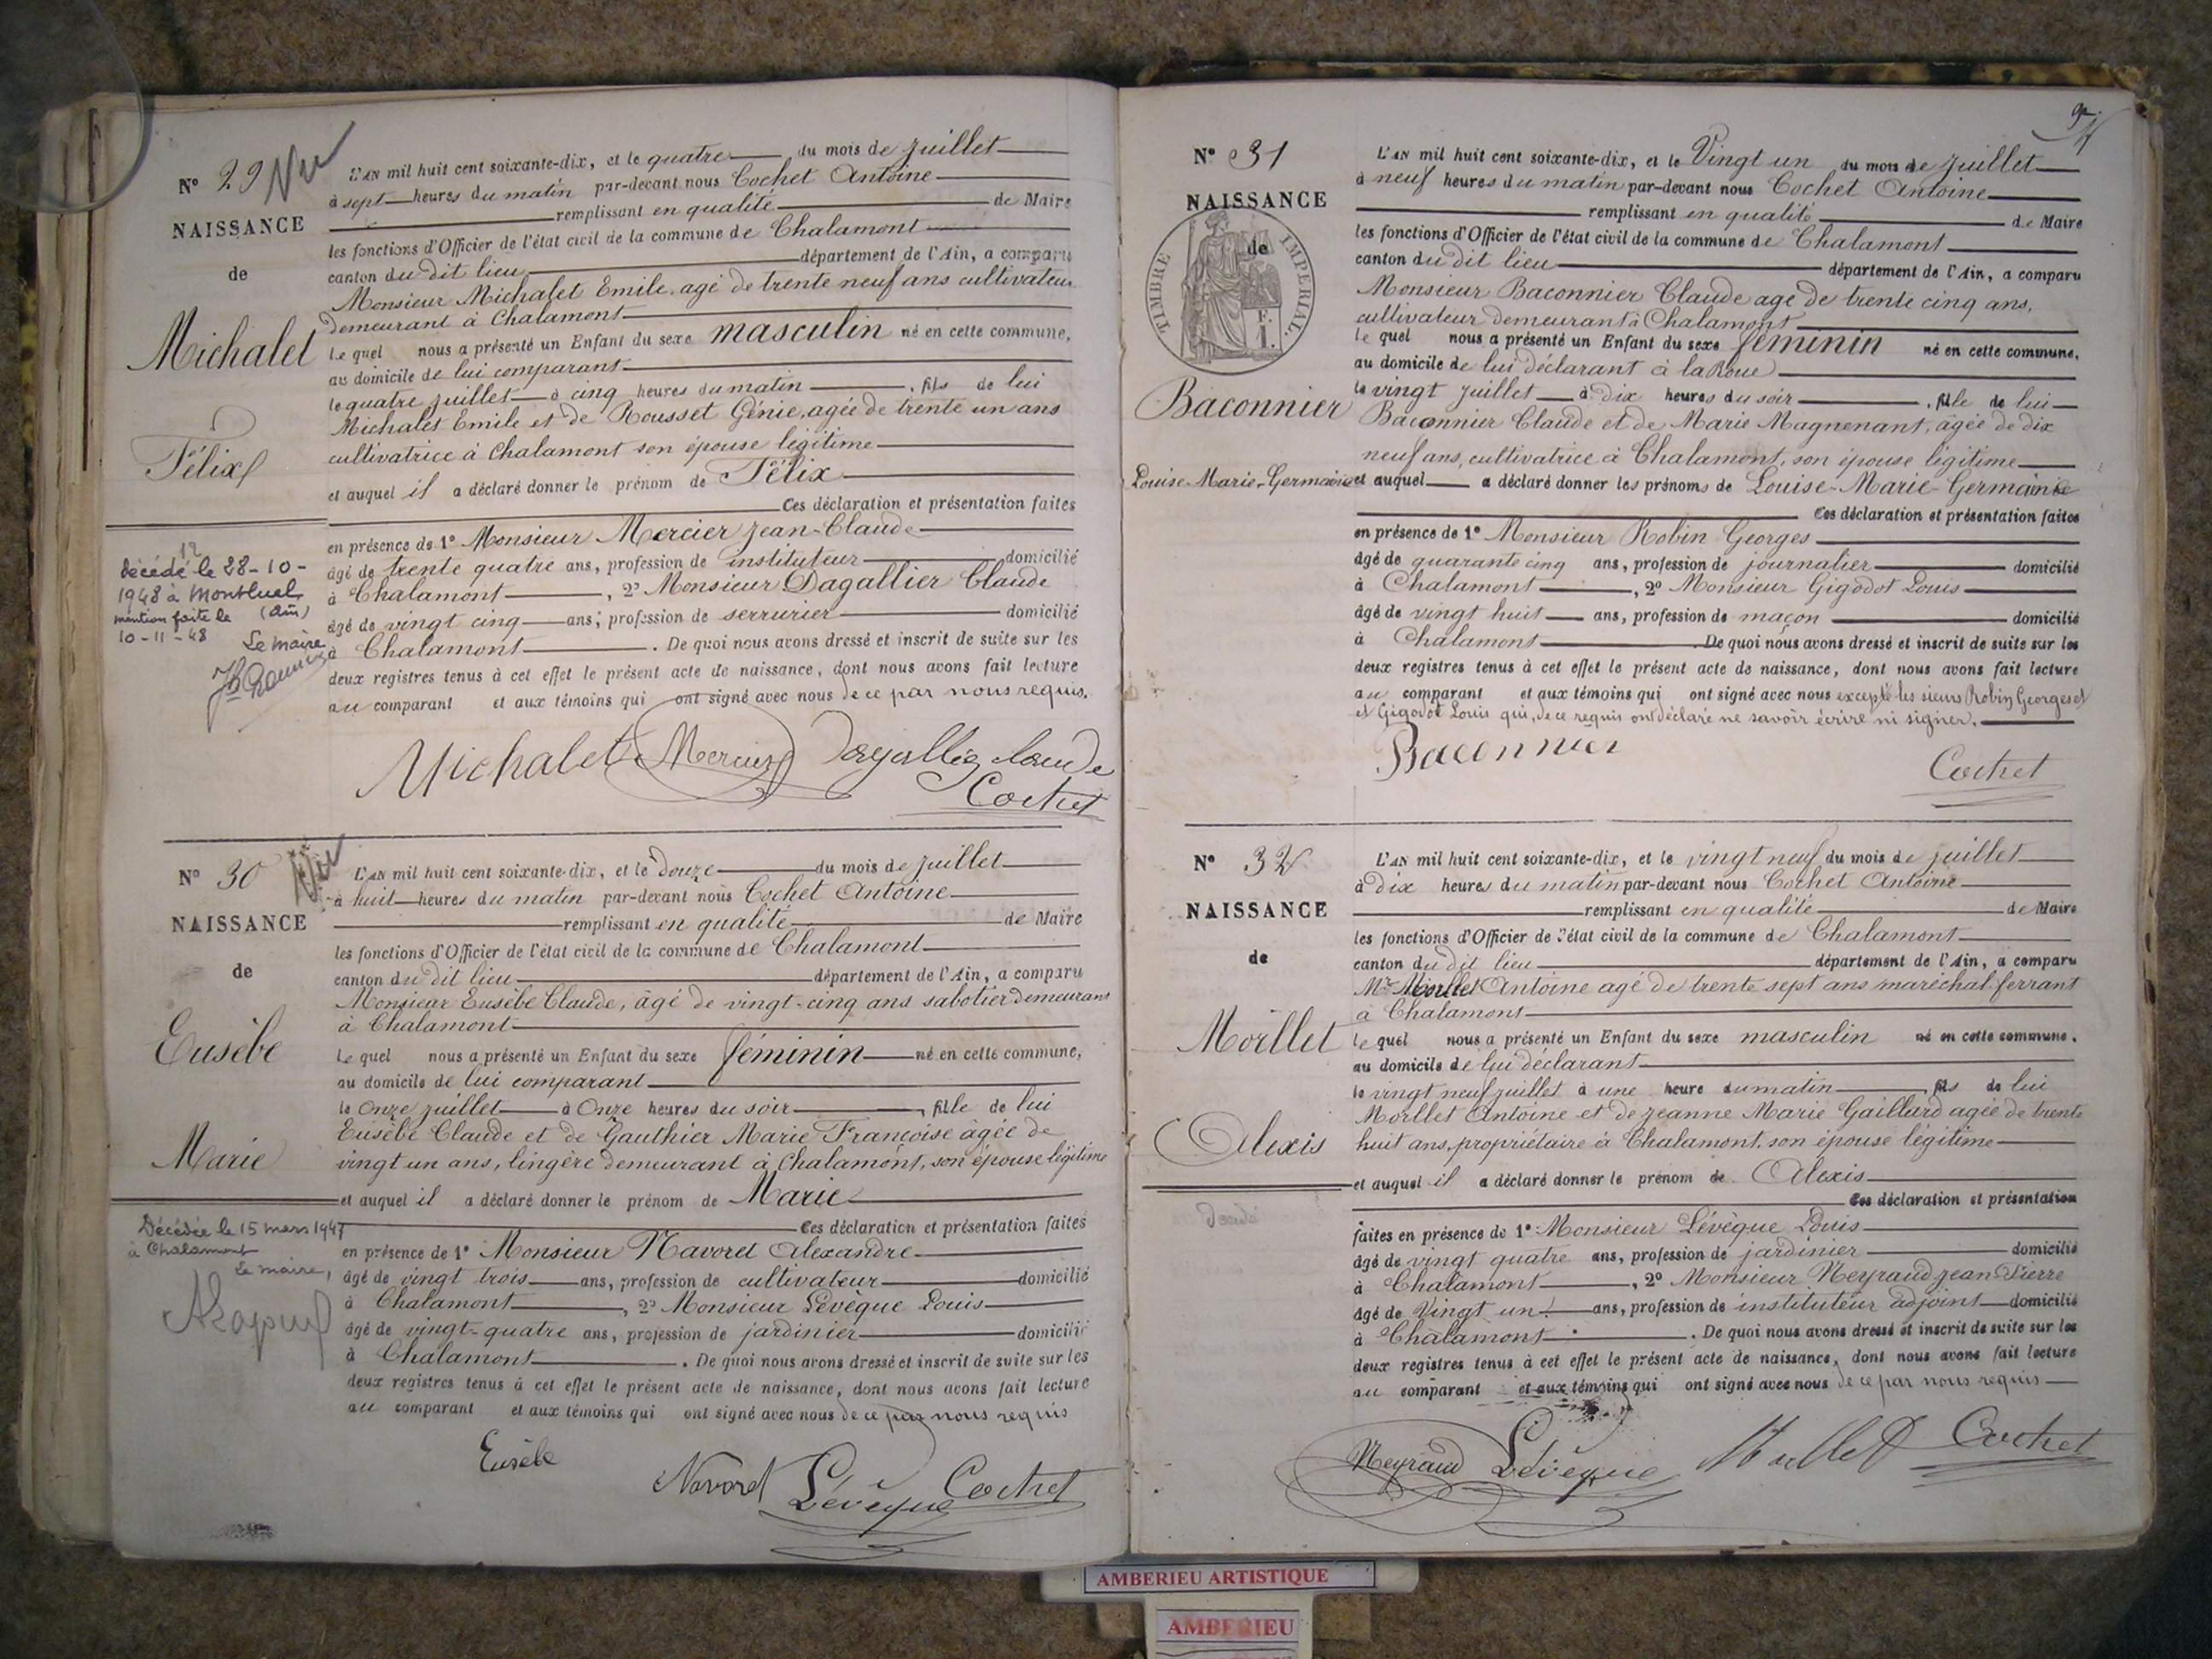 N° 29 Vu
NAISSANCE
de
Michalet
Félix
décédé le 28-10-
1948 à Montluel
(Ain)
mention faite le
10-11-48
Le maire
L'AN mil huit cent soixante-dix, et le quatre du mois de juillet
à sept heures du matin par-devant nous Cochet Antoine
remplissant en qualité de Maire
les fonctions d'Officier de l'état civil de la commune de Chalamont
canton du dit lieu département de l'Ain, a comparu
Monsieur Michalet Emile, agé de trente neuf ans cultivateur
demeurant à Chalamont
le quel nous a présenté un Enfant du sexe masculin né en cette commune,
au domicile de lui comparant
le quatre juillet à cinq heures du matin, fils de lui
Michalet Emile et de Rousset Génie, agée de trente un ans
cultivatrice à Chalamont son épouse légitime
et auquel il a déclaré donner le prénom de Félix
Ces déclaration et présentation faites
en présence de 1° Monsieur Mercier Jean-Claude
âgé de trente quatre ans, profession de instituteur domicilié
à Chalamont, 2° Monsieur Dagallier Claude
âgé de vingt cinq ans; profession de serrurier domicilié
à Chalamont. De quoi nous avons dressé et inscrit de suite sur les
deux registres tenus à cet effet le présent acte de naissance, dont nous avons fait lecture
au comparant et aux témoins qui ont signé avec nous de ce par nous requis.
Michalet Mercier Dagallier Claude
Cochet
N° 30 Vu
NAISSANCE
de
Eusèbe
Marie
Décédée le 15 mars 1947
à Chalamont
Le maire,
L'AN mil huit cent soixante-dix, et le douze du mois de juillet
à huit heures du matin par-devant nous Cochet Antoine
remplissant en qualité de Maire
les fonctions d'Officier de l'état civil de la commune de Chalamont
canton du dit lieu département de l'Ain, a comparu
Monsieur Eusèbe Claude, âgé de vingt-cinq ans sabotier demeurant
à Chalamont
le quel nous a présenté un Enfant du sexe féminin né en cette commune,
au domicile de lui comparant
le Onze juillet à Onze heures du soir, fille de lui
Eusèbe Claude et de Gauthier Marie Françoise âgée de
vingt un ans, lingère demeurant à Chalamont, son épouse légitime
et auquel il a déclaré donner le prénom de Marie
Ces déclaration et présentation faites
en présence de 1° Monsieur Navoret Alexandre
âgé de vingt trois ans, profession de cultivateur domicilié
à Chalamont, 2° Monsieur Lévêque Louis
âgé de vingt-quatre ans, profession de jardinier domicilié
à Chalamont. De quoi nous avons dressé et inscrit de suite sur les
deux registres tenus à cet effet le présent acte de naissance, dont nous avons fait lecture
au comparant et aux témoins qui ont signé avec nous de ce par nous requis
Eusèbe
Navoret Lévêque Cochet
N° 31
NAISSANCE
de
TIMBRE IMPERIAL
F.
1.
Baconnier
Louise-Marie-Germaine
L'AN mil huit cent soixante-dix, et le Vingt un du mois de juillet
à neuf heures du matin par-devant nous Cochet Antoine
remplissant en qualité de Maire
les fonctions d'Officier de l'état civil de la commune de Chalamont
canton du dit lieu département de l'Ain, a comparu
Monsieur Baconnier Claude agé de trente cinq ans,
cultivateur demeurant à Chalamont
le quel nous a présenté un Enfant du sexe féminin né en cette commune,
au domicile de lui déclarant à la Roue
le vingt juillet à dix heures du soir, fille de lui
Baconnier Claude et de Marie Magnenant, âgée de dix
neuf ans, cultivatrice à Chalamont, son épouse légitime
et auquel a déclaré donner les prénoms de Louise-Marie-Germaine
Ces déclaration et présentation faites
en présence de 1° Monsieur Robin Georges
âgé de quarante cinq ans, profession de journalier domicilié
à Chalamont, 2° Monsieur Gigodot Louis
âgé de vingt huit ans, profession de maçon domicilié
à Chalamont. De quoi nous avons dressé et inscrit de suite sur les
deux registres tenus à cet effet le présent acte de naissance, dont nous avons fait lecture
au comparant et aux témoins qui ont signé avec nous excepté les sieurs Robin Georges et
et Gigodot Louis qui, de ce requis ont déclaré ne savoir écrire ni signer.
Baconnier
Cochet
N° 32
NAISSANCE
de
Morllet
Alexis
L'AN mil huit cent soixante-dix, et le vingt neuf du mois de juillet
à dix heures du matin par-devant nous Cochet Antoine
remplissant en qualité de Maire
les fonctions d'Officier de l'état civil de la commune de Chalamont
canton du dit lieu département de l'Ain, a comparu
Mr Morllet Antoine agé de trente sept ans maréchal-ferrant
à Chalamont
le quel nous a présenté un Enfant du sexe masculin né en cette commune,
au domicile de lui déclarant
le vingt neuf juillet à une heure du matin, fils de lui
Morllet Antoine et de Jeanne Marie Gaillard agée de trente
huit ans, propriétaire à Chalamont, son épouse légitime
et auquel il a déclaré donner le prénom de Alexis
Ces déclaration et présentation
faites en présence de 1° Monsieur Lévêque Louis
âgé de vingt quatre ans, profession de jardinier domicilié
à Chalamont, 2° Monsieur Neyraud Jean-Pierre
âgé de Vingt un ans, profession de instituteur adjoint domicilié
à Chalamont. De quoi nous avons dressé et inscrit de suite sur les
deux registres tenus à cet effet le présent acte de naissance, dont nous avons fait lecture
au comparant et aux témoins qui ont signé avec nous de ce par nous requis
Neyraud Lévêque Morllet Cochet
AMBERIEU ARTISTIQUE
AMBERIEU